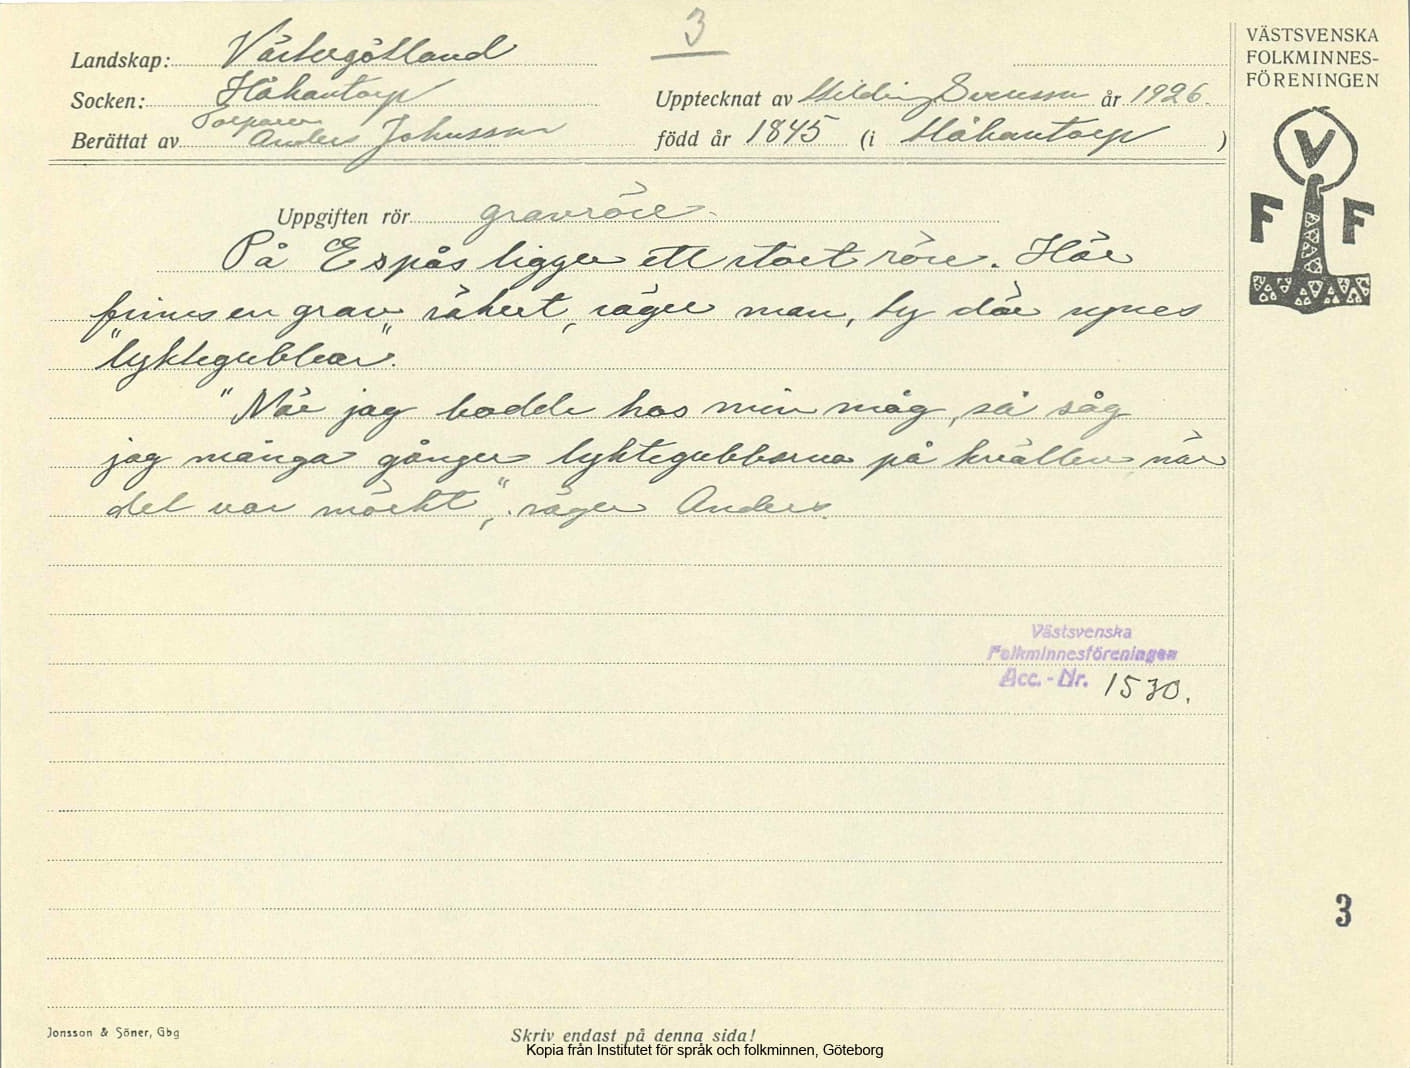 3
Landskap: Västergötland
Socken: Håkantorp
Upptecknat av Hilding Svensson år 1926.
Torparen
Berättat av Anders Johnsson
född år 1845 (i Håkantorp)
VÄSTSVENSKA
FOLKMINNES-
FÖRENINGEN
V
F F
Uppgiften rör gravröse.
På Espås ligger ett stort röse. Här
finnes en grav säkert, säger man, ty där synes
"lyktegubbar".
"När jag bodde hos min måg, så såg
jag många gånger lyktegubbarna på kvällen när
det var mörkt", säger Anders.
Västsvenska
Folkminnesföreningen
Acc.-Nr. 1530.
3
Jonsson & Söner, Gbg
Skriv endast på denna sida!
Kopia från Institutet för språk och folkminnen, Göteborg